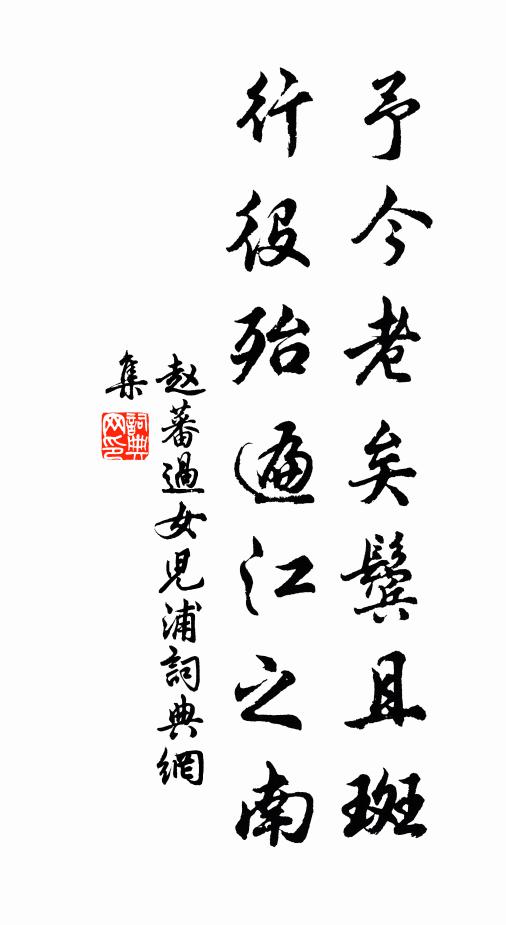 予今老矣鬓且斑
行役殆遍江之南
赵蕃過女児浦詞典網
集
詞典
网印